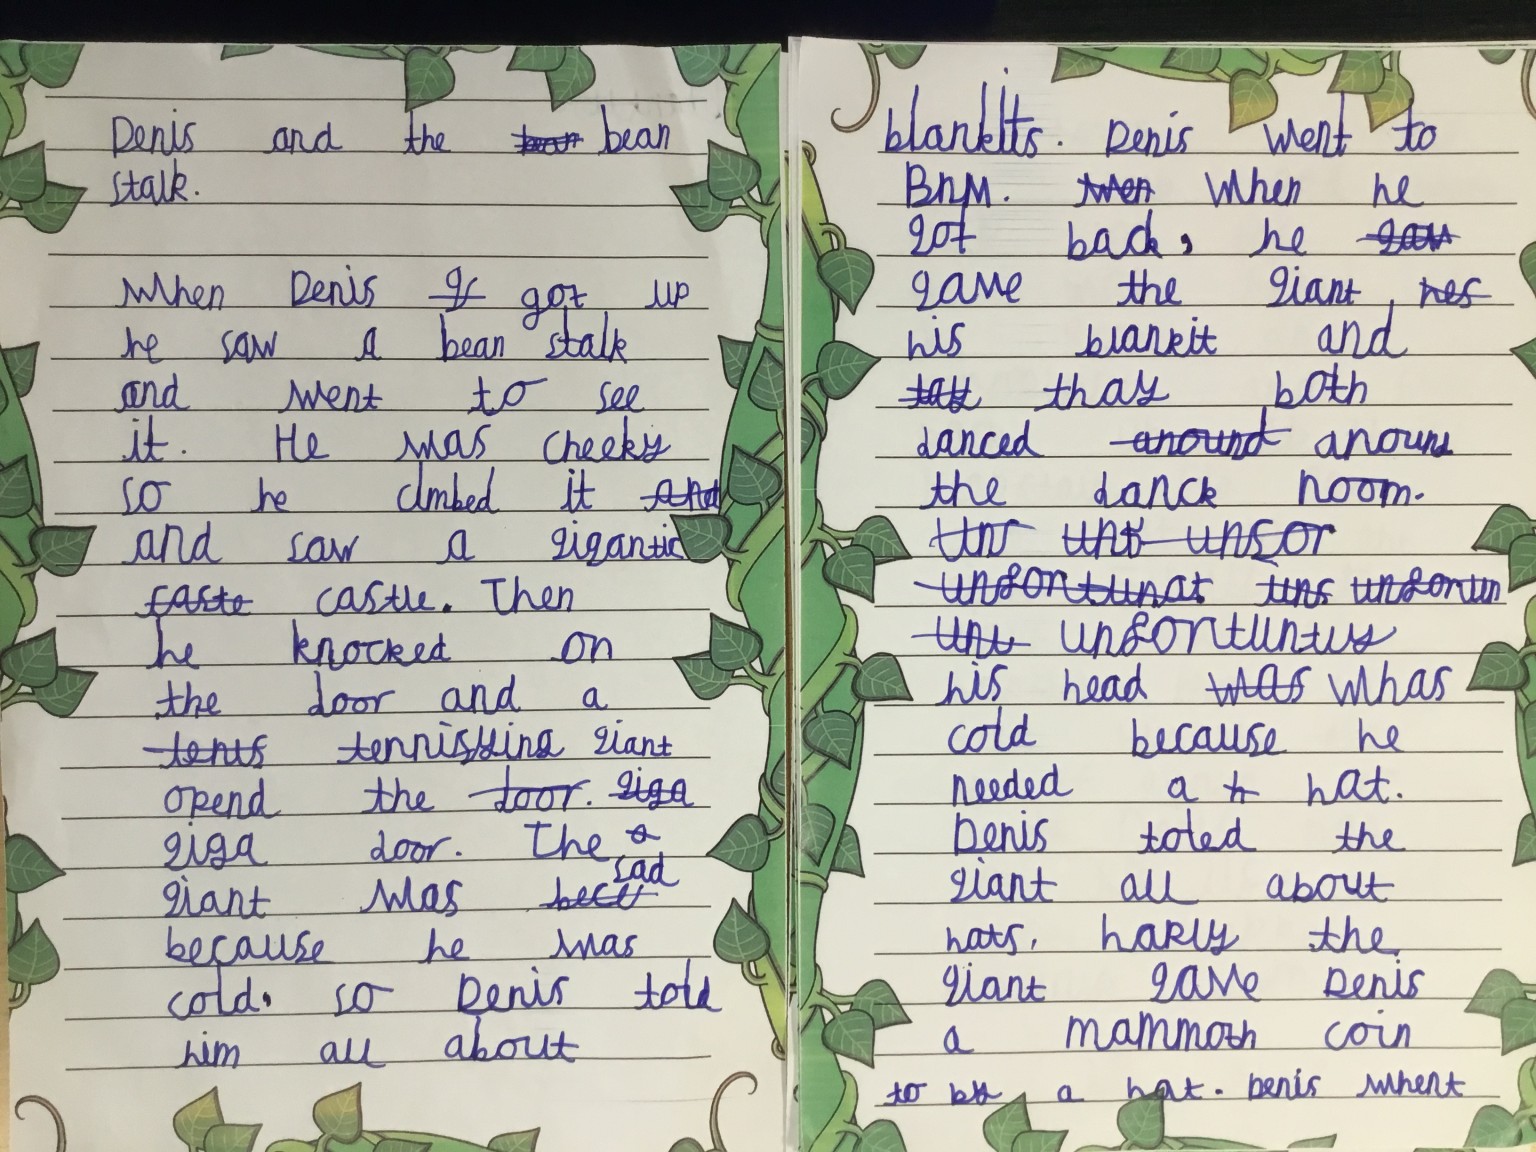 Denis and the bean
stalk.
When Denis got up
he saw a bean stalk
and went to see
it. He was cheeky
so he climbed it and
and saw a gigantic
caste castle. Then
he knocked on
the door and a
terrifying giant
opend the door. giga
giga door. The
sad
giant was
because he was
cold. so Denis told
him all about
blankits. Denis went to
BnM. wen When he
got back, he gav
gave the giant hes
his blankit and
tay thay both
danced around around
the dance room.
unfortunat
unfortuntus
his head was whas
cold because he
needed a h hat.
Denis toled the
giant all about
hats, harly the
giant gave Denis
a mammoth coin
to by a hat. Denis whent